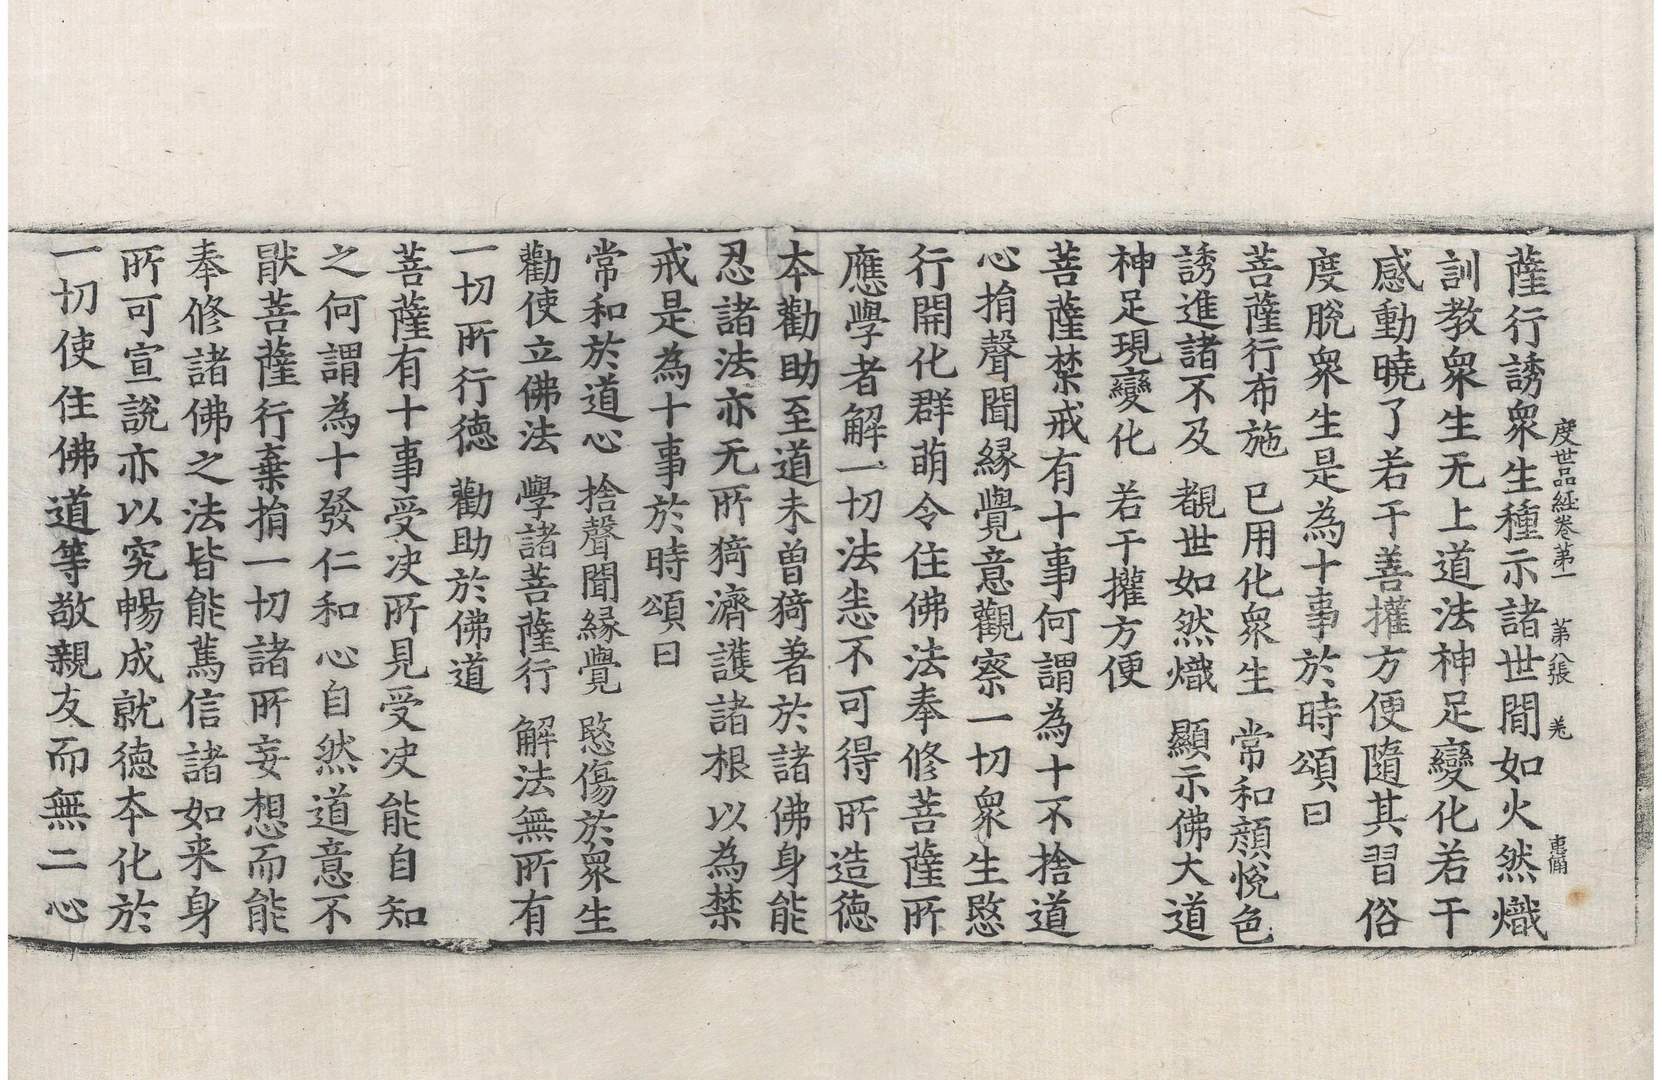 度世品経巻第一 第八張 羌 惠俌
薩行誘衆生種示諸世間如火然熾
訓教衆生无上道法神足變化若干
感動曉了若干善攉方便隨其習俗
度脫衆生是為十事於時頌曰
菩薩行布施 已用化衆生 常和顔悅色
誘進諸不及 覩世如然熾 顯示佛大道
神足現變化 若干攉方便
菩薩禁戒有十事何謂為十不捨道
心捐聲聞緣覺意觀察一切衆生愍
行開化群萌令住佛法奉修菩薩所
應學者解一切法恙不可得所造德
夲勸助至道未曾猗著於諸佛身能
忍諸法亦无所猗濟護諸根以為禁
戒是為十事於時頌曰
常和於道心 捨聲聞緣覺 愍傷於衆生
勸使立佛法 學諸菩薩行 解法無所有
一切所行德 勸助於佛道
菩薩有十事受决所見受决能自知
之何謂為十發仁和心自然道意不
猒菩薩行棄捐一切諸所妄想而能
奉修諸佛之法皆能篤信諸如来身
所可宣說亦以究暢成就德夲化於
一切使住佛道等敬親友而無二心